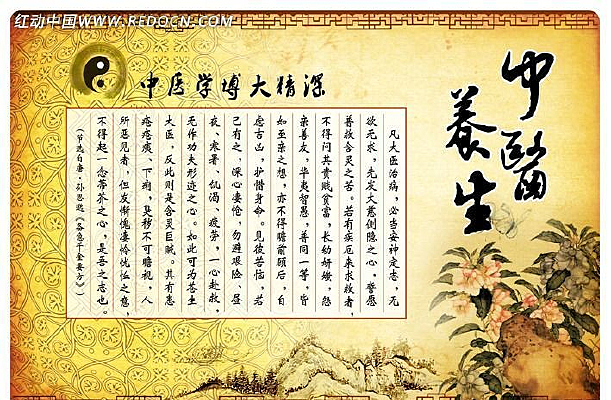 红动中国 WWW.REDOCN.COM
中醫
養生
中医学博大精深
凡大医治病，必当安神定志，无
欲无求，先发大慈恻隐之心，誓愿
普救含灵之苦。若有疾厄来求救者，
不得问其贵贱贫富，长幼妍媸，怨
亲善友，华夷智愚，普同一等，皆
如至亲之想，亦不得瞻前顾后，自
虑吉凶，护惜身命。见彼苦恼，若
己有之，深心凄怆，勿避艰险、昼
夜、寒暑、饥渴、疲劳，一心赴救，
无作功夫形迹之心。如此可为苍生
大医，反此则是含灵巨贼。其有患
下痢，臭秽不可瞻视，人
所恶见者，但发惭愧凄怜忧恤之意，
不得起一念蒂芥之心，是吾之志也。
（节选自唐·孙思邈《备急千金要方》）